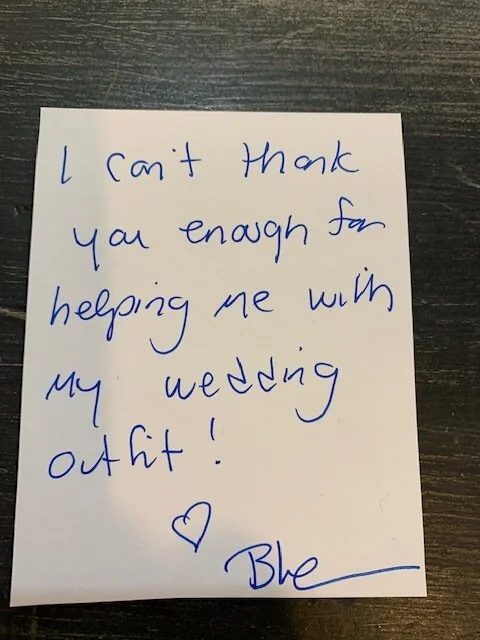 I can't thank
you enough for
helping me with
my wedding
outfit!
♡